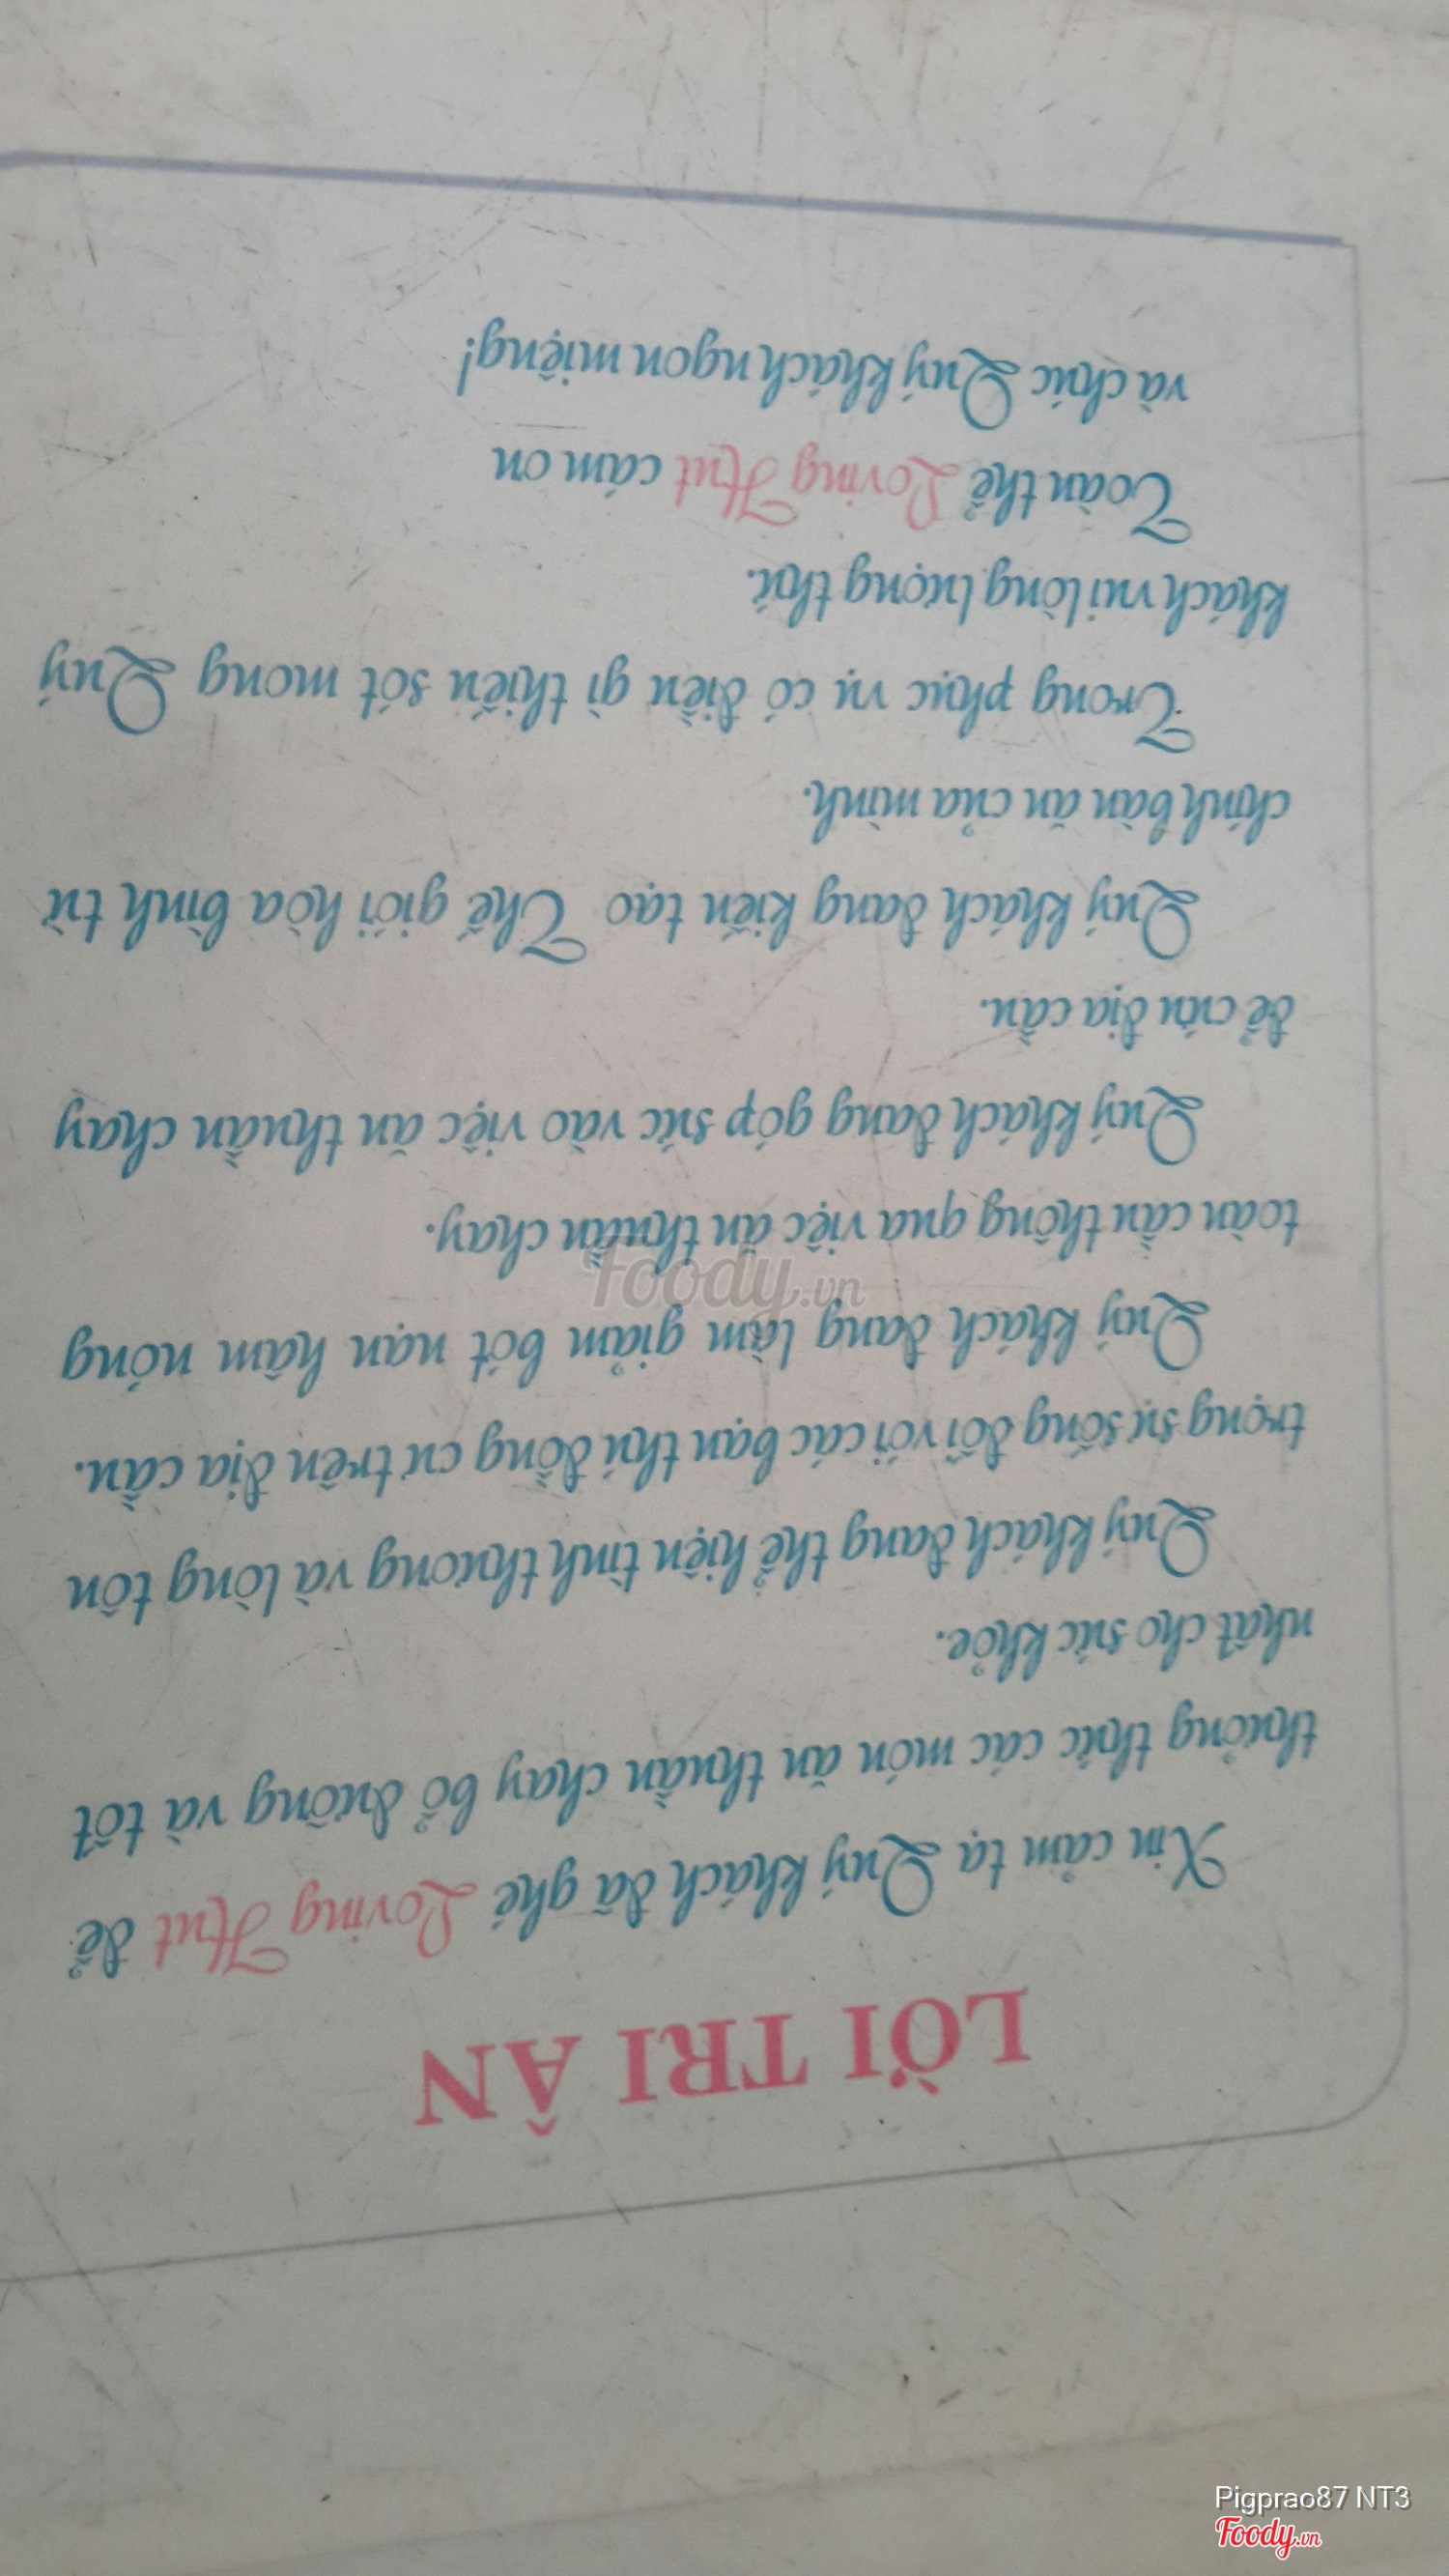 LỜI TRI ÂN
Xin cảm tạ Quý khách đã ghé Loving Hut để
thưởng thức các món ăn thuần chay bổ dưỡng và tốt
nhất cho sức khỏe.
Quý khách đang thể hiện tình thương và lòng tôn
trọng sự sống đối với các bạn thú đồng cư trên địa cầu.
Quý khách đang làm giảm bớt nạn hâm nóng
toàn cầu thông qua việc ăn thuần chay.
Quý khách đang góp sức vào việc ăn thuần chay
để cứu địa cầu.
Quý khách đang kiến tạo Thế giới hòa bình từ
chính bàn ăn của mình.
Trong phục vụ có điều gì thiếu sót mong Quý
khách vui lòng lượng thứ.
Toàn thể Loving Hut cám ơn
và chúc Quý khách ngon miệng!
Foody.vn
Pigprao87 NT3
Foody.vn